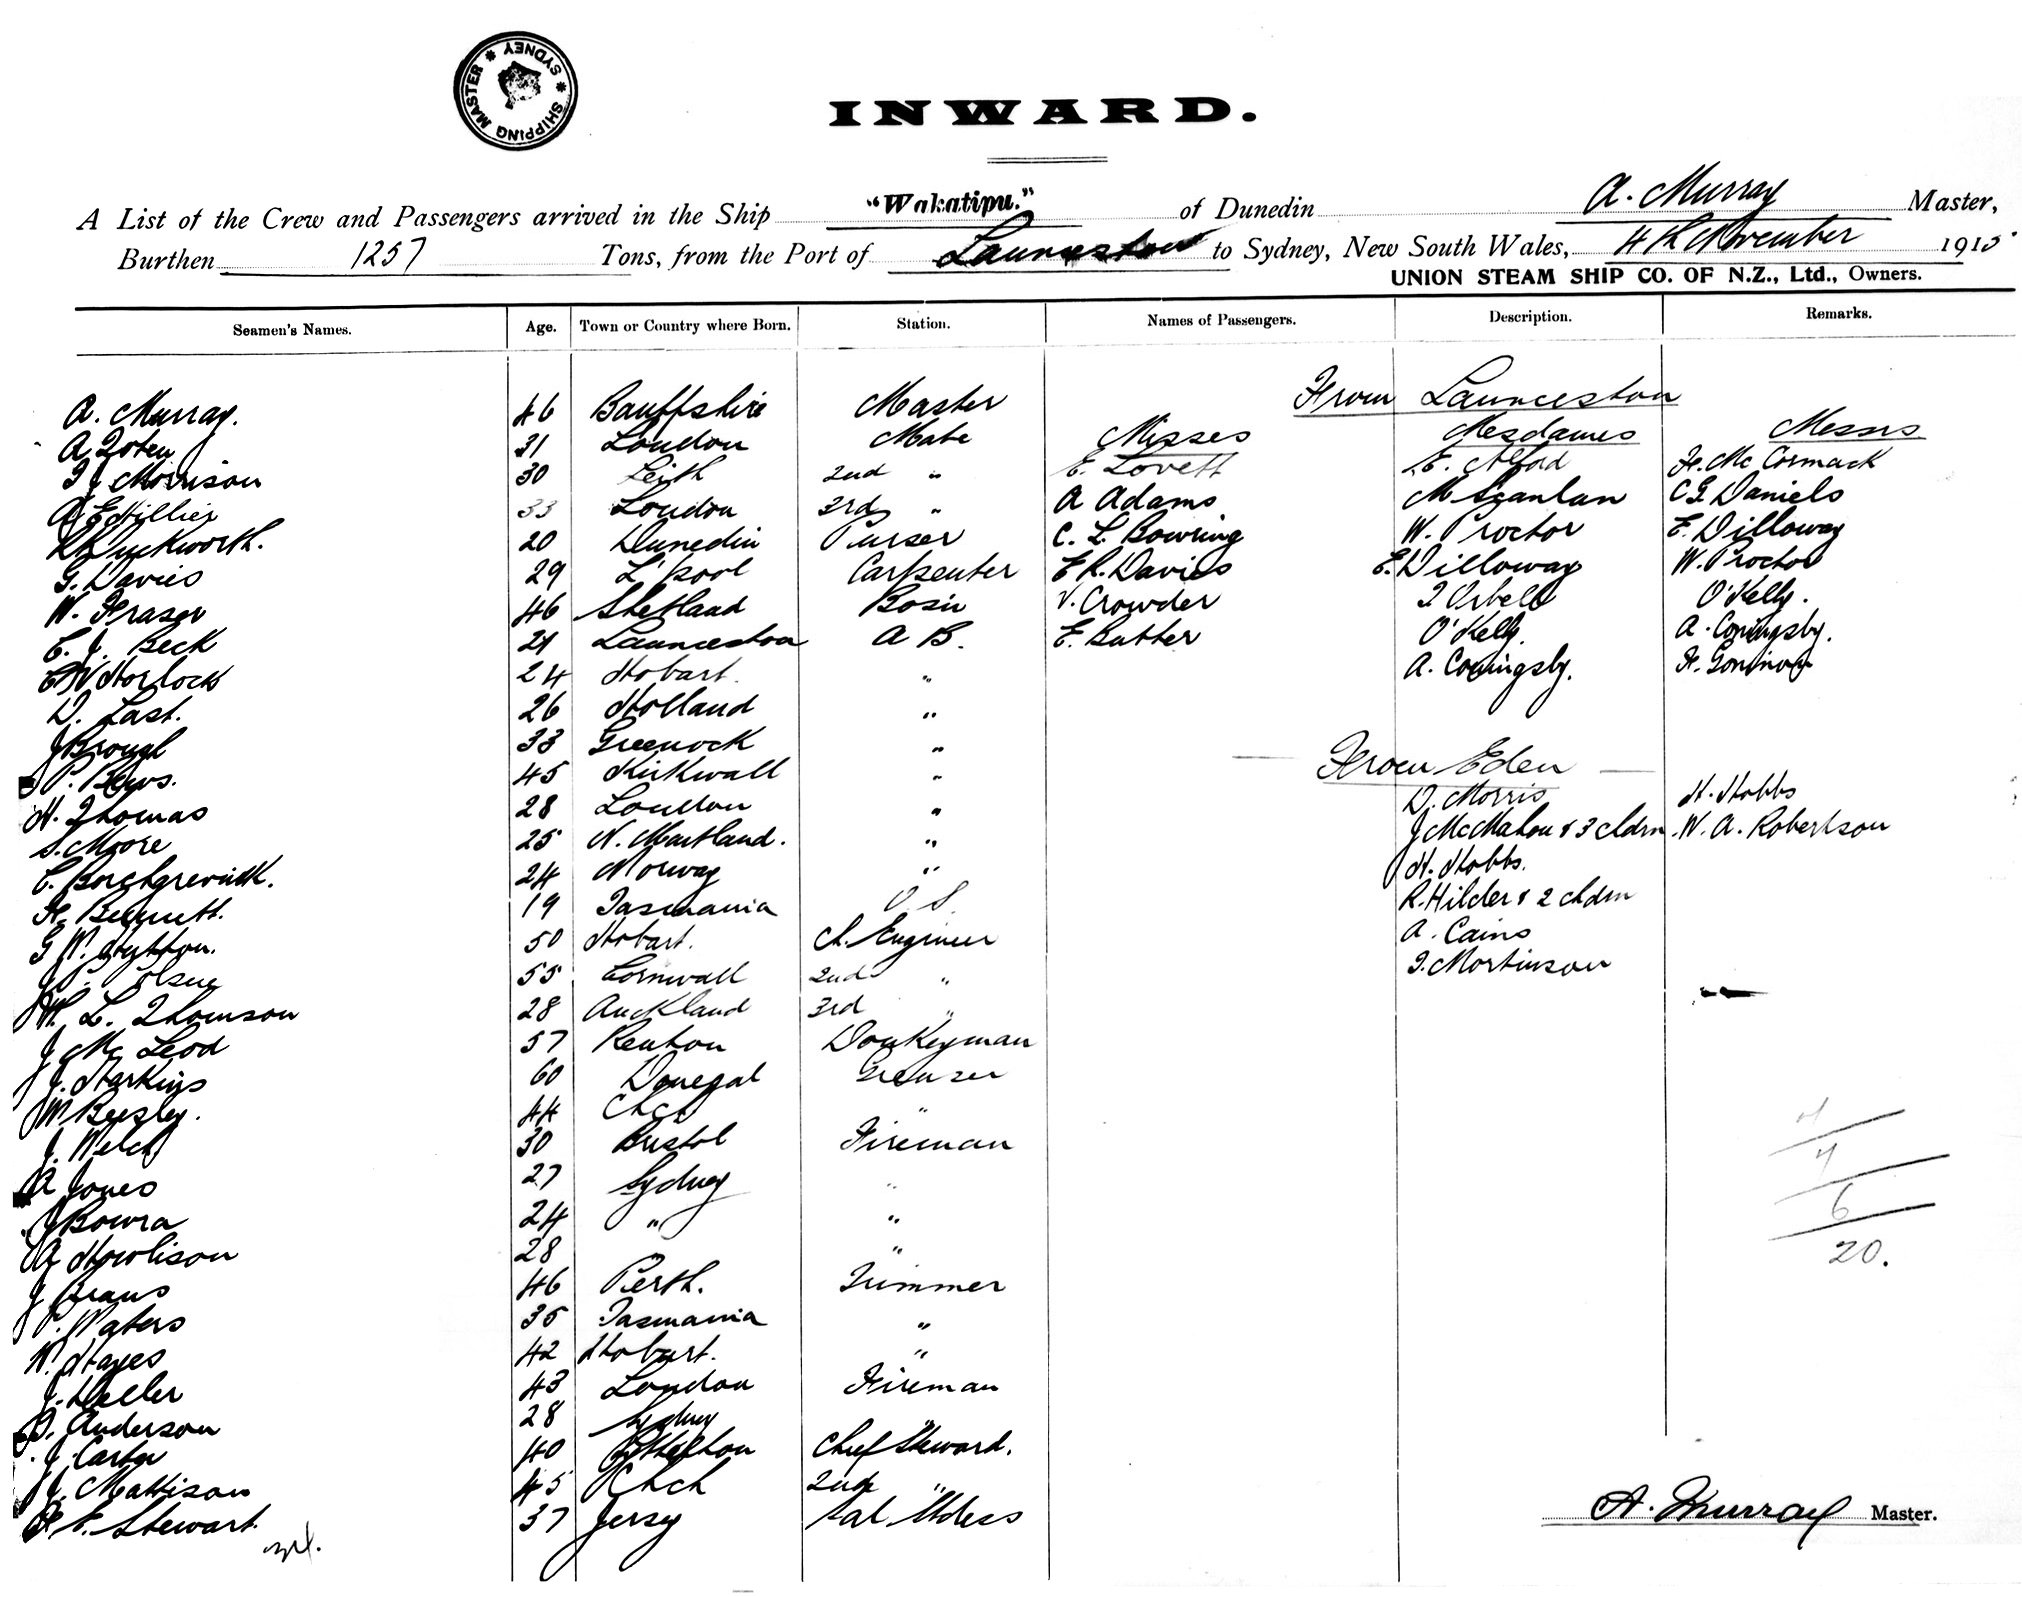 SHIPPING MASTER * SYDNEY *
INWARD.
A List of the Crew and Passengers arrived in the Ship "Wakatipu." of Dunedin A. Murray Master,
Burthen 1257 Tons, from the Port of Launceston to Sydney, New South Wales, 4th November 1915
UNION STEAM SHIP CO. OF N.Z., Ltd., Owners.
Seamen's Names. Age. Town or Country where Born. Station. Names of Passengers. Description. Remarks.
From Launceston
A. Murray. 46 Banffshire Master
A 31 London Mate Misses Mesdames Messrs
Morrison 30 Leith 2nd " E. Lovett E. F. McCormack
A E Hillier 33 London 3rd " A Adams M Scanlan C G Daniels
Duckworth. 20 Dunedin Purser C. L. Bowring W. Proctor E. Dilloway
G. Davies 29 L'pool Carpenter E R. Davies E. Dilloway W. Proctor
W. Fraser 46 Shetland Bosn V. Crowder Orbell O'Kelly.
C. J. Beck 21 Launceston A B. E. Butter O'Kelly. A. Coningsby.
Horlock 24 Hobart. " A. Coningsby. F.
D. Last. 26 Holland "
J Brough 33 Greenock "
From Eden
P. 45 Kirkwall "
H. Thomas 28 London " D. Morris H. Hobbs
S. Moore 25 N. Maitland. " J McMahon & 3 cldrn W. A. Robertson
C. Borchgrevink. 24 Norway " H. Hobbs.
H. Bennett. 19 Tasmania O. S. R. Hilder & 2 chdrn
G W. 50 Hobart. Ch. Engineer A. Cains
J P. 55 Cornwall 2nd " T. Mortinson
W. L. Thomson 28 Auckland 3rd "
J Mc Leod 57 Renton Donkeyman
J. Harkins 60 Donegal Greaser
W Beesley. 44 Chch "
J. Welch 30 Bristol Fireman
A Jones 27 Sydney "
J Bowra 24 " "
A Howlison 28 "
J 46 Perth. Trimmer
P. Waters 35 Tasmania "
W. Hayes 42 Hobart. "
J. 43 London Fireman
D. Anderson 28 Sydney "
J. Carter 40 Lyttelton Chief Steward.
J. Mattison 45 Chch 2nd "
F. E. Stewart. 37 Jersey Sal Stdess
4
6
20.
A. Murray Master.